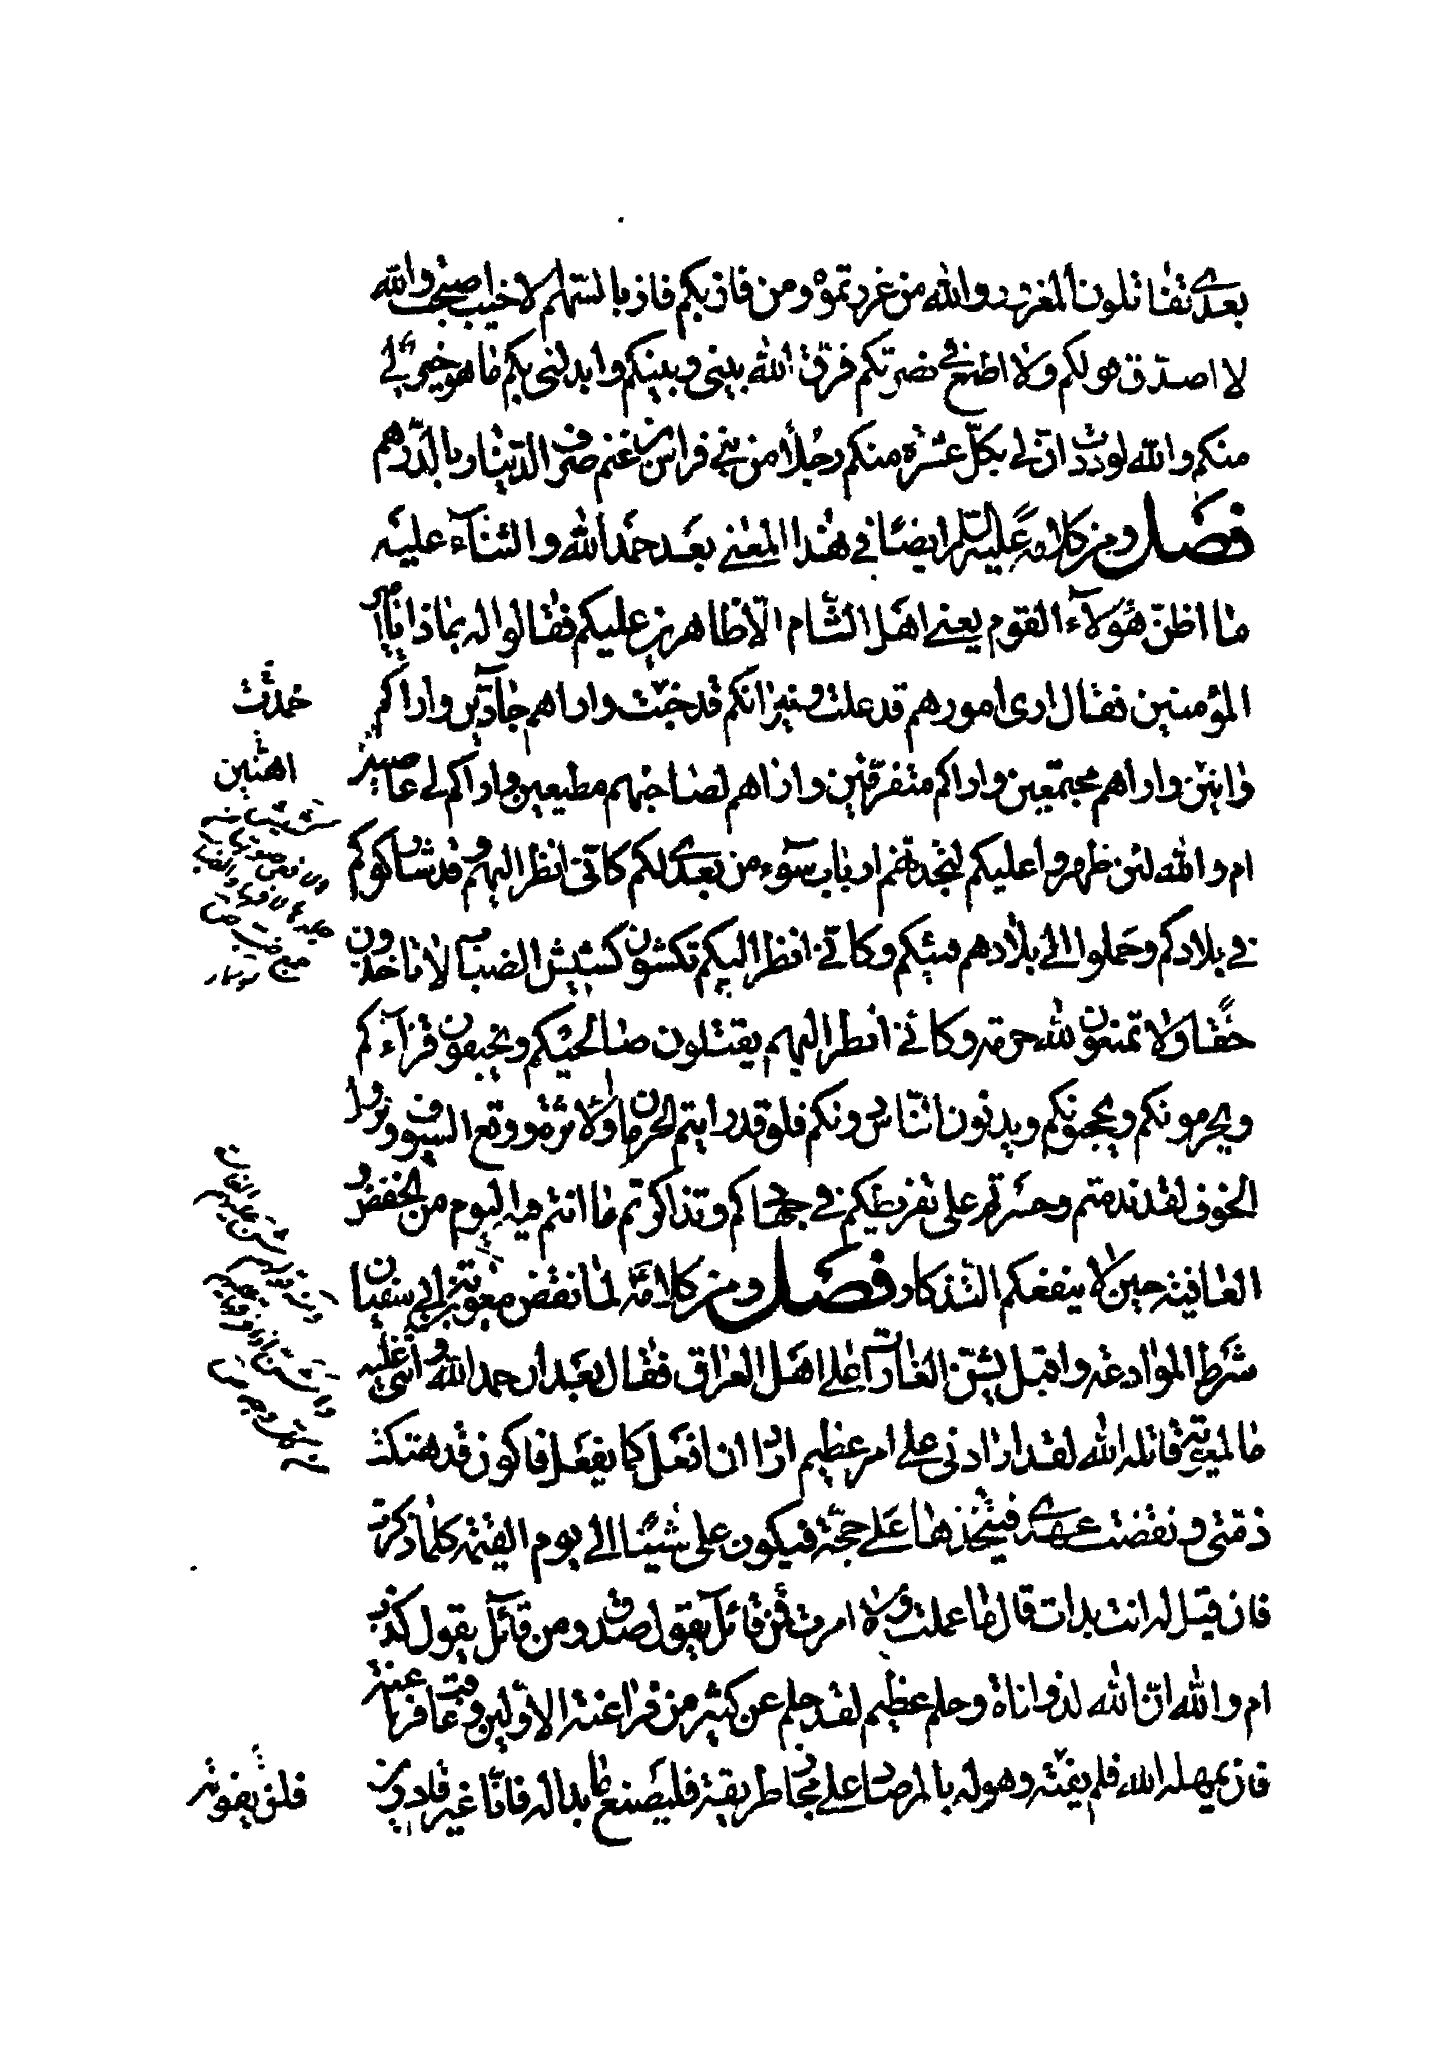 بعدي تقاتلون المغرور والله من غررتموه ومن فاز بكم فاز بالسهم الاخيب اصبحت والله
لا اصدق قولكم ولا اطمع في نصرتكم فرق الله بيني وبينكم وابدلني بكم ما هو خير لي
منكم والله لوددت ان لي بكل عشرة منكم رجلا من بني فراس بن غنم صرف الدينار بالدرهم
فصل ومن كلامه عليه السلم ايضا في هذا المعني بعد حمد الله والثناء عليه
ما اظن هؤلاء القوم يعني اهل الشام الا ظاهرين عليكم فقالوا له بماذا يا امير
المؤمنين فقال ارى امورهم قد علت ونيرانكم قد خبت واراهم جادين واراكم
وانين واراهم مجتمعين واراكم متفرقين واراهم لصاحبهم مطيعين واراكم لي عاصين
ام والله لئن ظهروا عليكم لتجدنهم ارباب سوء من بعدي لكم كاني انظر اليهم وقد شاركوكم
في بلادكم وحملوا الي بلادهم فيئكم وكاني انظر اليكم تكشون كشيش الضباب لا تاخذون
حقا ولا تمنعون لله حرمة وكاني انظر اليهم يقتلون صالحيكم ويخيفون قراءكم
ويحرمونكم ويحجبونكم ويدنون الناس دونكم فلو قد رايتم الحرمان والاثرة ووقع السيوف ونزول
الخوف لقد ندمتم وخسرتم على تفريطكم في جهادكم وتذاكرتم ما انتم فيه اليوم من الخفض و
العافية حين لا ينفعكم التذكار فصل ومن كلامه لما نقض معوية بن ابي سفيان
شرط الموادعة واقبل يشن الغارات على اهل العراق فقال بعد ان حمد الله واثنى عليه
ما لمعوية قاتله الله لقد ارادني علي امر عظيم اراد ان افعل كما يفعل فاكون قد هتكت
ذمتي ونقضت عهدي فيتخذها علي حجة فيكون علي شيئا الي يوم القيمة كلما ذكرت
فان قيل له انت بدات قال ما عملت ولا امرت فمن قائل يقول صدق ومن قائل يقول كذب
ام والله ان الله لذو اناة وحلم عظيم لقد حلم عن كثير من فراعنة الاولين وعاقب فراعنة
فان يمهله الله فلم يفته وهو له بالمرصاد علي مجاز طريقه فليصنع ما بدا له فانا غير غادرين
خمدت
اهنين
فلن يفوته